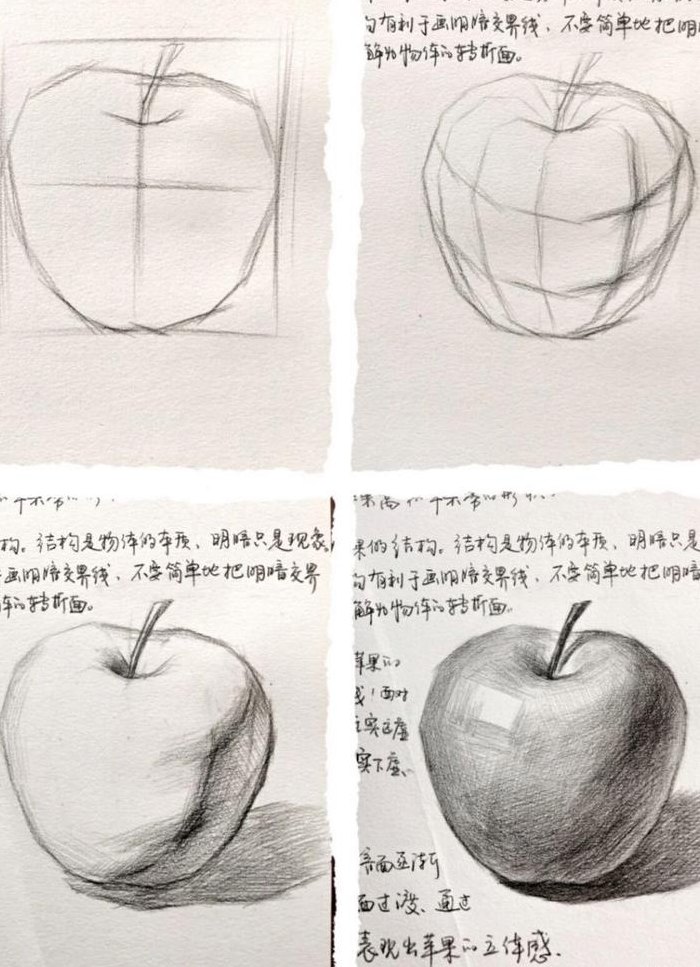 勾有利于画明暗交界线、不要简单地把明
解为物体的转折面。
构。结构是物体的本质、明暗只是现象
画明暗交界线、不要简单地把明暗交界
体的转折面。
果的结构。结构是物体的本质、明暗只是
勾有利于画明暗交界线、不要简单地把明暗
解为物体的转折面。
苹果的
线！面对
实近虚
实下虚、
面逐渐
面过渡、通过
表现出苹果的立体感.